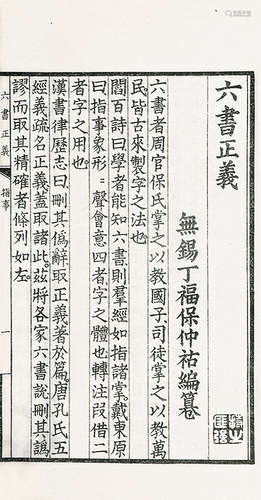 六書正義
無錫丁福保仲祜編纂
六書者周官保氏掌之以教國子司徒掌之以教萬
民皆古來製字之法也
閻百詩曰學者能知六書則羣經如指諸掌戴東原
曰指事象形諧聲會意四者字之體也轉注叚借二
者字之用也
漢書律歷志曰刪其僞辭取正義著於篇唐孔氏五
經義疏名正義蓋取諸此茲將各家六書說刪其譌
謬而取其精確者條列如左
六書正義
指事
一